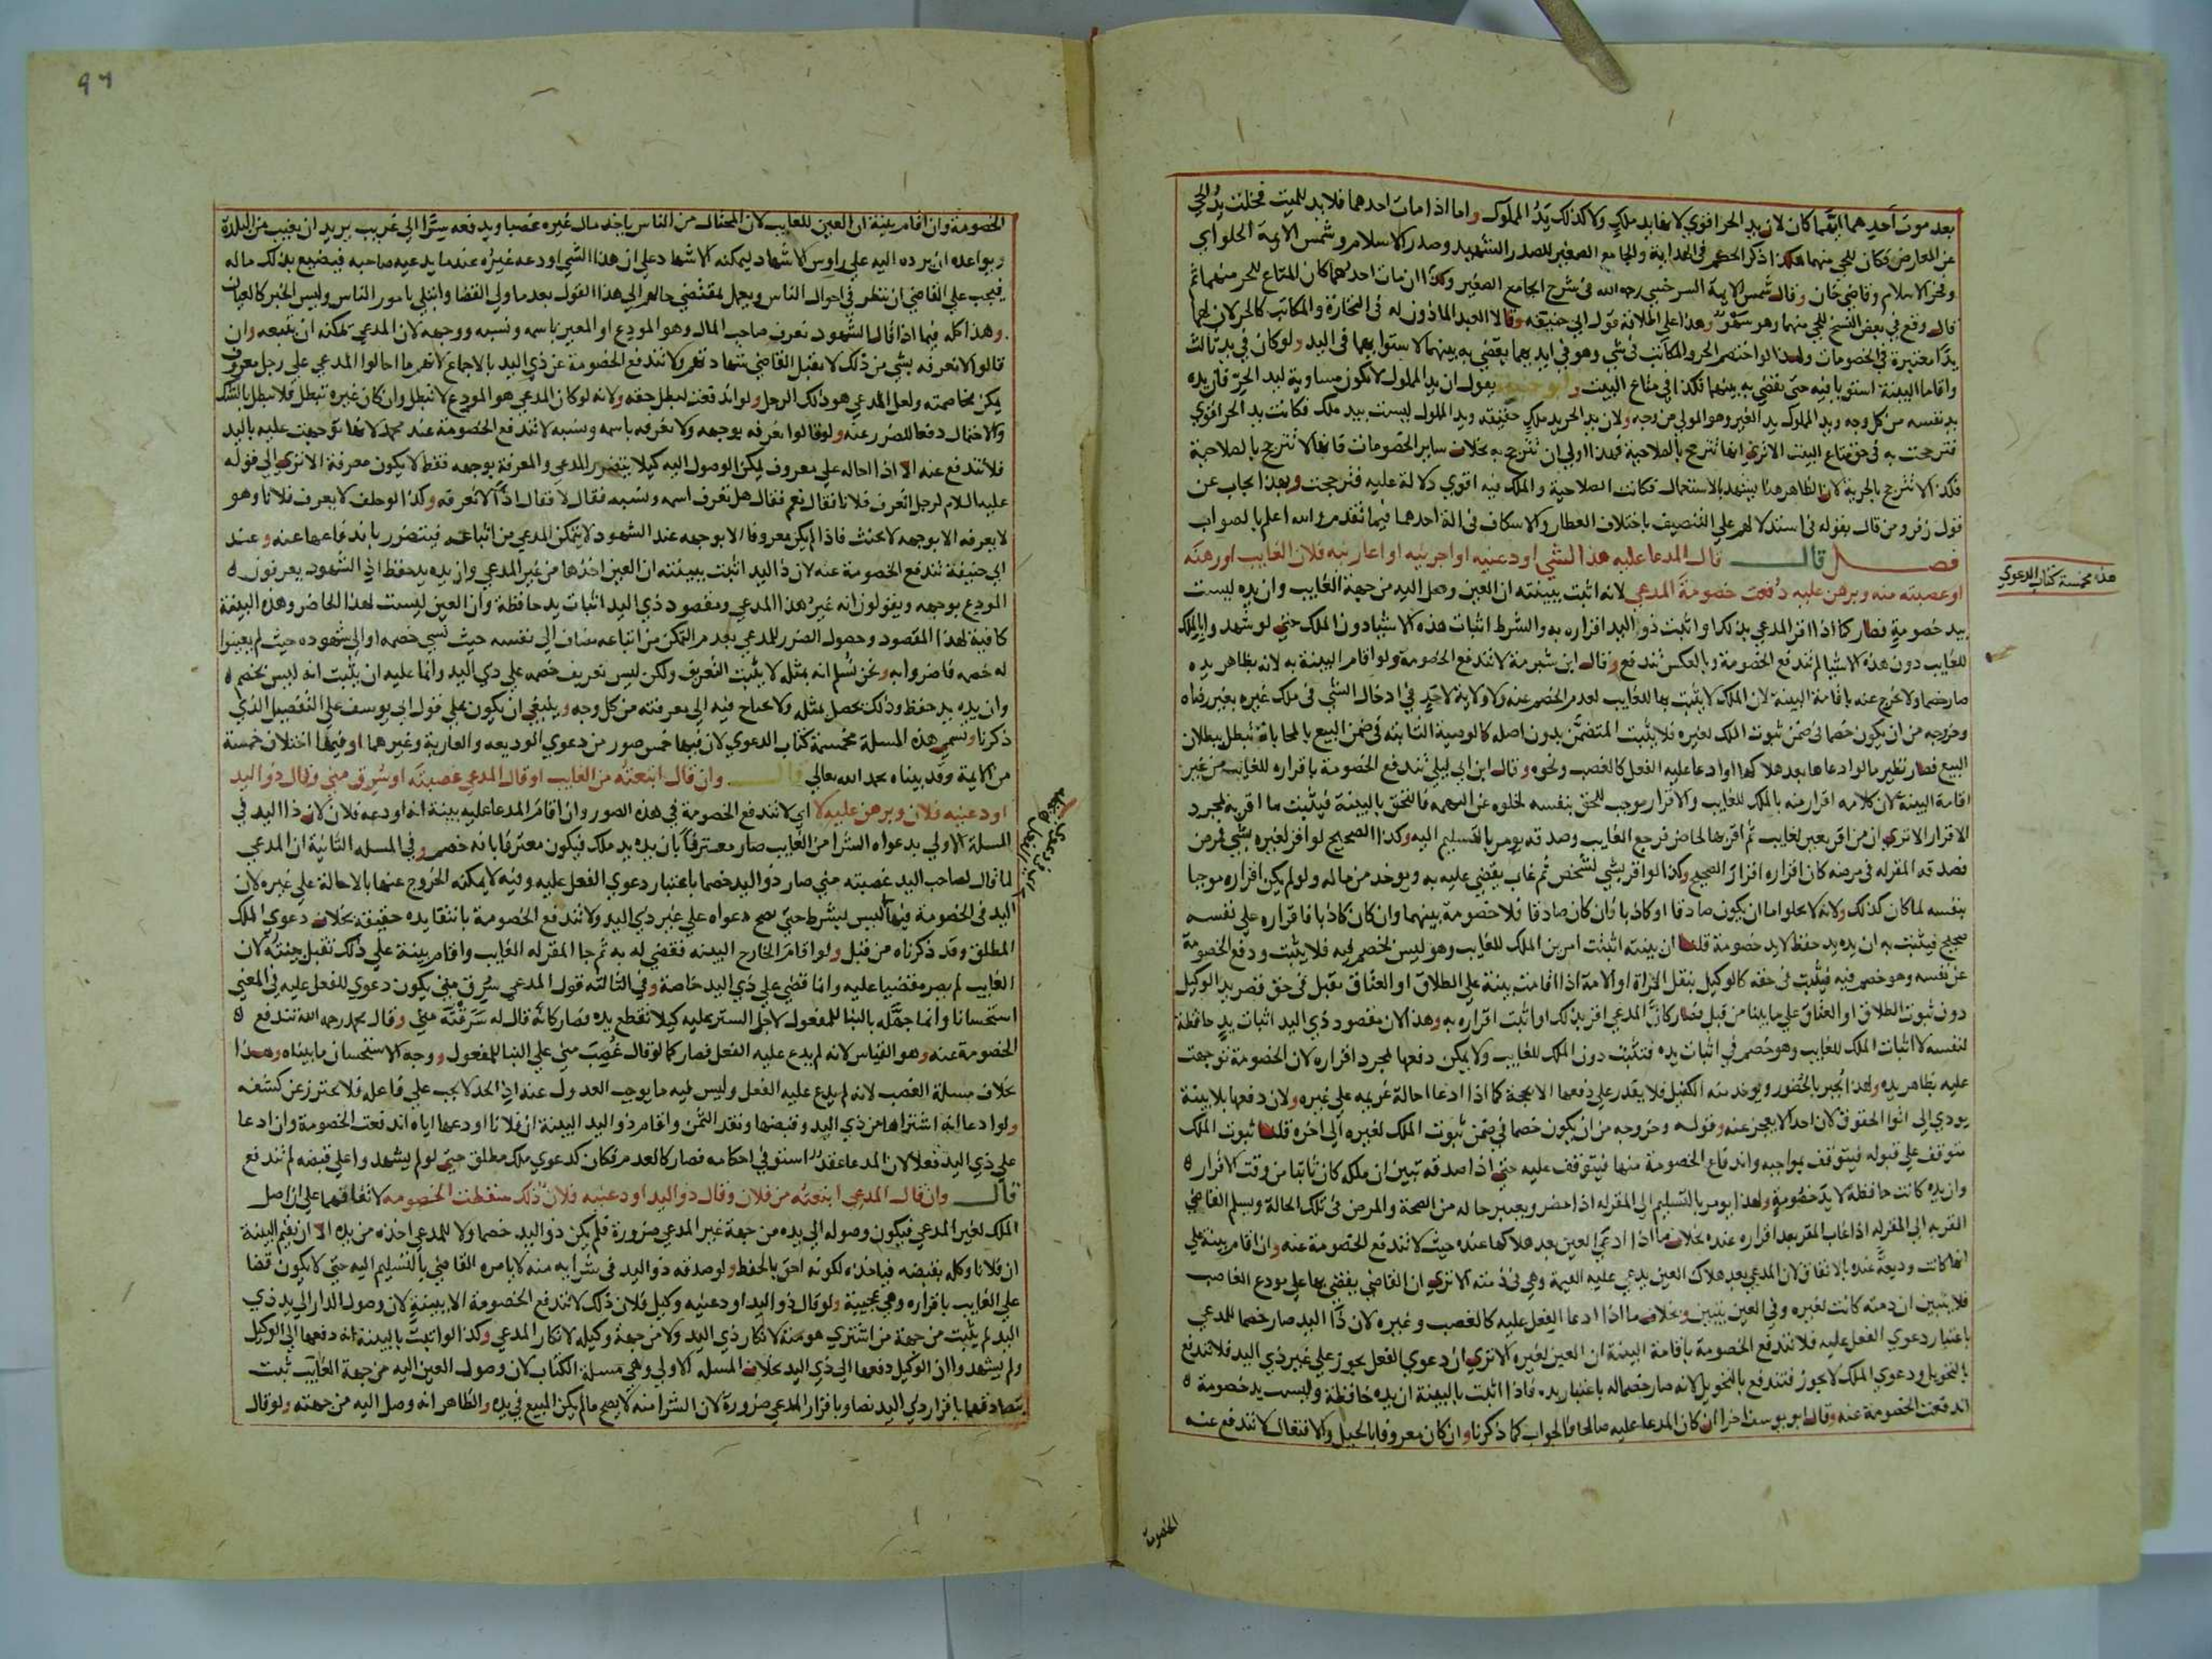 بعد موت احدهما ايهما كان لان يد الحر اقوي لانها يد ملك ولا كذلك يد المملوك واما اذا مات احدهما فلا يد للميت فخلت يد الحي
عن المعارض فكان للحي منهما هكذا ذكر الحكم في الهداية والجامع الصغير للصدر الشهيد وصدر الاسلام وشمس الايمة الحلواي
وفخر الاسلام وقاضي خان وقال شمس الايمة السرخسي رحمه الله في شرح الجامع الصغير وكذا ان مات احدهما كان المتاع للحر منهما ثم
قال وقع في بعض النسخ للحي منهما وهو سهو وهذا علي اطلاقه قول ابي حنيفه وقالا العبد الماذون له في التجارة والمكاتب كالحر لان لهما
يدا معتبرة في الخصومات ولهذا لو اختصم الحر والمكاتب في شي وهو في ايديهما يقضي به بينهما لاستوايهما في اليد ولو كان في يد ثالث
واقاما البينة استويا فيه حتي يقضي به بينهما فكذا في متاع البيت وابو حنيفة يقول ان يد المملوك لا تكون مساوية ليد الحر فان يده
يد نفسه من كل وجه ويد المملوك يد الغير وهو المولي من وجه ولان يد الحر يد ملك حقيقته ويد المملوك ليست بيد ملك فكانت يد الحر اقوي
فترجحت به في حق متاع البيت الا تري انها تترجح بالصلاحية فهذا اولي ان تترجح به بخلاف ساير الخصومات فانها لا تترجح بالصلاحية
فكذا لا تترجح بالحرية لان الظاهر هنا يشهد بالاستعمال فكانت الصلاحية والملك فيه اقوي دلالة عليه فترجحت وبهذا يجاب عن
قول زفر ومن قال بقوله في استدلالهم علي التنصيف باختلاف العطار والاسكاف في الة احدهما فيما تقدم والله اعلم بالصواب
فصل قال قال المدعا عليه هذا الشي اودعنيه او اجرنيه او اعارنيه فلان الغايب او رهنه
او غصبته منه وبرهن عليه دفعت خصومة المدعي لانه اثبت ببينته ان العين وصل اليه من جهة الغايب وان يده ليست
يد خصومة فصار كما اذا اقر المدعي بذلك او اثبت ذو اليد اقراره به والشرط اثبات هذه الاشيا دون الملك حتي لو شهدوا بالملك
للغايب دون هذه الاشيا لم تندفع الخصومة وبالعكس تندفع وقال ابن شبرمة لا تندفع الخصومة ولو اقام البينة به لانه بظاهر يده
صار خصما ولا يخرج عنه باقامة البينة لان الملك لا يثبت بها للغايب لعدم الخصم عنه ولا ولاية لاحد في ادخال الشي في ملك غيره بغير رضاه
وخروجه من ان يكون خصما في ضمن ثبوت الملك لغيره فلا يثبت المتضمن بدون اصله كالوصية الثابته في ضمن البيع بالمحاباة تبطل ببطلان
البيع فصار نظير ما لو ادعاها بعد هلاكها او ادعا عليه الفعل كالغصب ونحوه وقال ابن ابي ليلي تندفع الخصومة باقراره للغايب من غير
اقامة البينة لان كلامه اقرار منه بالملك للغايب والاقرار موجب للحق بنفسه لخلوه عن التهمه فالتحق بالبينة فيثبت ما اقر به بمجرد
الاقرار الا تري ان من اقر بعين لغايب ثم اقر بها لحاضر فرجع الغايب وصدقه يومر بالتسليم اليه وكذا الصحيح لو اقر لغيره بشي فمرض
فصدقه المقر له في مرضه كان اقراره اقرار الصحيح وكذا لو اقر بشي لشخص ثم غاب يقضي عليه به ويوخذ من ماله ولو لم يكن اقراره موجبا
بنفسه لما كان كذلك ولانه لا يخلو اما ان يكون صادقا او كاذبا فان كان صادقا فلا خصومة بينهما وان كان كاذبا فاقراره علي نفسه
صحيح فيثبت به ان يده يد حفظ لا يد خصومة قلنا ان بينته اثبتت امرين الملك للغايب وهو ليس بخصم فيه فلا يثبت ودفع الخصومة
عن نفسه وهو خصم فيه فيثبت في حقه كالوكيل بنقل المراة او الامة اذا اقامت بينة علي الطلاق او العتاق تقبل في حق قصر يد الوكيل
دون ثبوت الطلاق او العتاق علي ما بينا من قبل فصار كان المدعي اقر بذلك او اثبت اقراره به وهذا لان مقصود ذي اليد اثبات يد حافظة
لنفسه لا اثبات الملك للغايب وهو خصم في اثبات يده فتثبت دون الملك للغايب ولا يمكن دفعها بمجرد اقراره لان الخصومة توجهت
عليه بظاهر يده ولهذا يجبر بالحضور ويوخذ منه الكفيل فلا يقدر علي دفعها الا بحجة كما اذا ادعا احالة غريمه علي غيره ولان دفعها بلا بينة
يودي الي اتوا الحقوق لان احدا لا يعجز عنه وقوله وخروجه من ان يكون خصما في ضمن ثبوت الملك لغيره الي اخره قلنا ثبوت الملك
متوقف علي قبوله فيتوقف بمواجبه واندفاع الخصومة منها فيتوقف عليه حتي اذا صدقه تبين ان ملكه كان ثابتا من وقت الاقرار
وان يده كانت حافظة لا يد خصومة ولهذا يومر بالتسليم الي المقر له اذا حضر ويعتبر حاله من الصحة والمرض في تلك الحالة ويسلم القاضي
المقر به الي المقر له اذا غاب المقر بعد اقراره عنده بخلاف ما اذا ادعي العين بعد هلاكها عنده حيث لا تندفع الخصومة عنه وان اقام بينة علي
انها كانت وديعة عنده بالاتفاق لان المدعي بعد هلاك العين يدعي عليه القيمة وهي في ذمته الا تري ان القاضي يقضي بها علي مودع الغاصب
فلا يتبين ان ذمته كانت لغيره وفي العين يتبين وبخلاف ما اذا ادعا الفعل عليه كالغصب وغيره لان ذا اليد صار خصما للمدعي
باعتبار دعوي الفعل عليه فلا تندفع الخصومة باقامة البينة ان العين لغيره الا تري ان دعوي الفعل يجوز علي غير ذي اليد فلا تندفع
بالتحويل ودعوي الملك لا يجوز فتندفع بالتحويل لانه صار خصما له باعتبار يده فاذا اثبت بالبينة ان يده حافظة وليست يد خصومة
اندفعت الخصومة عنه وقال ابو يوسف اخرا ان كان المدعا عليه صالحا فالجواب كما ذكرنا وان كان معروفا بالحيل والافتعال لا تندفع عنه
هذه مخمسة كتاب الدعوي
الخصومة
٩٦
الخصومة وان اقام بينة ان العين للغايب لان المحتال من الناس ياخذ مال غيره غصبا ويدفعه سرا الي غريب يريد ان يغيب من البلدة
ويواعده ان يرده اليه علي راوس الاشهاد ليمكنه الاشهاد علي ان هذا الشي اودعه غيره عندما يدعيه صاحبه فيضيع بذلك ماله
فيجب علي القاضي ان ينظر في احوال الناس ويعمل بمقتضي حالهم الي هذا القول بعد ما ولي القضا وابتلي بامور الناس وليس الخبر كالعيان
وهذا كله فيما اذا قال الشهود نعرف صاحب المال وهو المودع او المعير باسمه ونسبه ووجهه لان المدعي يمكنه ان يتبعه وان
قالوا لا نعرفه بشي من ذلك لا يقبل القاضي شهادتهم ولا تندفع الخصومة عن ذي اليد بالاجماع لانهم ما احالوا المدعي علي رجل معروف
يمكن مخاصمته ولعل المدعي هو ذلك الرجل ولو اندفعت لبطل حقه ولانه لو كان المدعي هو المودع لا تبطل وان كان غيره تبطل فلا تبطل بالشك
والاحتمال دفعا للضرر عنه ولو قالوا نعرفه بوجهه ولا نعرفه باسمه ونسبه لا تندفع الخصومة عند محمد لانها توجهت عليه باليد
فلا تندفع عنه الا اذا احاله علي معروف يمكن الوصول اليه كيلا يتضرر المدعي والمعرفة بوجهه فقط لا يكون معرفة الا تري الي قوله
عليه السلام لرجل اتعرف فلانا فقال نعم فقال هل تعرف اسمه ونسبه فقال لا فقال اذا لا تعرفه وكذا لو حلف لا يعرف فلانا وهو
لا يعرفه الا بوجهه لا يحنث فاذا لم يكن معروفا الا بوجهه عند الشهود لا يتمكن المدعي من اتباعه فيتضرر باندفاعها عنه وعند
ابي حنيفة تندفع الخصومة عنه لان ذا اليد اثبت ببينته ان العين اخذها من غير المدعي وان يده يد حفظ اذ الشهود يعرفون
المودع بوجهه ويقولون انه غير هذا المدعي ومقصود ذي اليد اثبات يد حافظة وان العين ليست لهذا الحاضر وهذه البينة
كافية لهذا المقصود وحصول الضرر للمدعي بعدم التمكن من اتباعه مضاف الي نفسه حيث نسي خصمه او الي شهوده حيث لم يعينوا
له خصمه فاضروا به ونحن نسلم انه بمثله لا يثبت التعريف ولكن ليس تعريف خصمه علي ذي اليد وانما عليه ان يثبت انه ليس بخصم
وان يده يد حفظ وذلك يحصل بمثله ولا يحتاج فيه الي معرفته من كل وجه وينبغي ان يكون علي قول ابي يوسف علي التفصيل الذي
ذكرنا وتسمي هذه المسلة مخمسة كتاب الدعوي لان فيها خمس صور من دعوي الوديعه والعارية وغيرهما او فيها اختلاف خمسة
من الايمة وقد بيناه بحمد الله تعالي قال وان قال ابتعته من الغايب او قال المدعي غصبته او سرق مني وقال ذو اليد
اودعنيه فلان وبرهن عليه لا اي لا تندفع الخصومة في هذه الصور وان اقام المدعا عليه بينة انه اودعه فلان لان ذا اليد في
المسلة الاولي بدعواه الشرا من الغايب صار معترفا بان يده يد ملك فيكون معترفا بانه خصم وفي المسله الثانية ان المدعي
لما قال لصاحب اليد غصبته مني صار ذو اليد خصما باعتبار دعوي الفعل عليه وفيه لا يمكنه الخروج عنها بالاحالة علي غيره لان
اليد في الخصومة فيها ليس بشرط حتي تصح دعواه علي غير ذي اليد ولا تندفع الخصومة بانتفا يده حقيقة بخلاف دعوي الملك
المطلق وقد ذكرناه من قبل ولو اقام الخارج البينه فقضي له به ثم جا المقر له الغايب واقام بينة علي ذلك تقبل بينته لان
الغايب لم يصر مقضيا عليه وانما قضي علي ذي اليد خاصة وفي الثالثه قول المدعي سرق مني يكون دعوي للفعل عليه في المعني
استحسانا وانما جهله بالبنا للمفعول لاجل الستر عليه كيلا تقطع يده فصار كانه قال له سرقته مني وقال محمد رحمه الله تندفع
الخصومة عنه وهو القياس لانه لم يدع عليه الفعل فصار كما لو قال غصب مني علي البنا للمفعول ووجه الاستحسان ما بيناه وهذا
بخلاف مسلة الغصب لانه لم يدع عليه الفعل وليس فيه ما يوجب العدول عنه اذ الحد لا يجب علي فاعله فلا يحترز عن كشفه
ولو ادعا انه اشتراها من ذي اليد وقبضها ونقد الثمن واقام ذو اليد البينة ان فلانا اودعها اياه اندفعت الخصومة وان ادعا
علي ذي اليد فعلا لان المدعا عقد استوفي احكامه فصار كالعدم فكان كدعوي ملك مطلق حتي لو لم يشهدوا علي قبضه لم تندفع
قال وان قال المدعي ابتعته من فلان وقال ذو اليد اودعنيه فلان ذلك سقطت الخصومه لاتفاقهما علي ان اصل
الملك لغير المدعي فيكون وصوله الي يده من جهة غير المدعي ضرورة فلم يكن ذو اليد خصما ولا للمدعي اخذه من يده الا ان يقيم البينة
ان فلانا وكله بقبضه فياخذه لكونه احق بالحفظ ولو صدقه ذو اليد في شرايه منه لا يامره القاضي بالتسليم اليه حتي لا يكون قضا
علي الغايب باقراره وهي عجيبة ولو قال ذو اليد اودعنيه وكيل فلان ذلك لا تندفع الخصومة الا ببينة لان وصول الدار الي يد ذي
اليد لم يثبت من جهة من اشتري هو منه لانكار ذي اليد ولا من جهة وكيله لانكار المدعي وكذا لو اثبت بالبينة انه دفعها الي الوكيل
ولم يشهدوا ان الوكيل دفعها الي ذي اليد بخلاف المسله الاولي وهي مسلة الكتاب لان وصول العين اليه من جهة الغايب ثبت
بتصادقهما باقرار ذي اليد نصا وباقرار المدعي ضرورة لان الشرا منه لا يصح ما لم يكن المبيع في يده والظاهر انه وصل اليه من جهته ولو قال